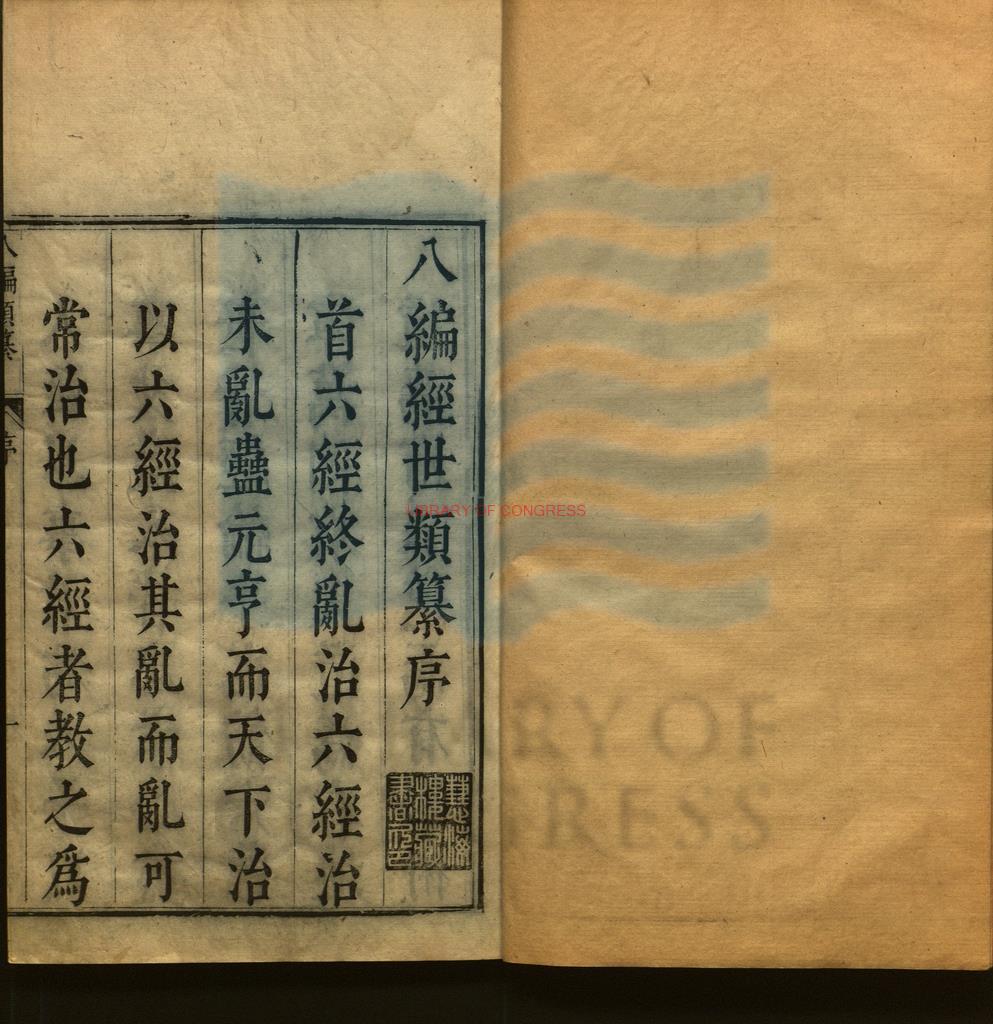 八編經世類纂序
首六經終亂治六經治
未亂蠱元亨而天下治
以六經治其亂而亂可
常治也六經者教之為
八編類纂
序
一
LIBRARY OF CONGRESS
RY OF
RESS